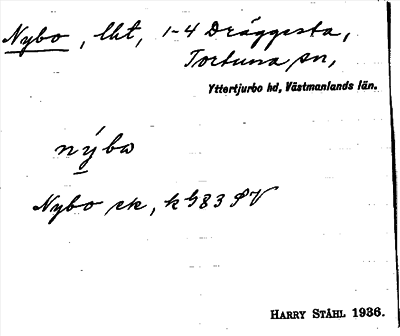 Nybo, lht, 1-4 Dräggesta,
Tortuna sn,
Yttertjurbo hd, Västmanlands län.
nýbω
Nybo ek, k G83 SV
HARRY STÅHL 1936.